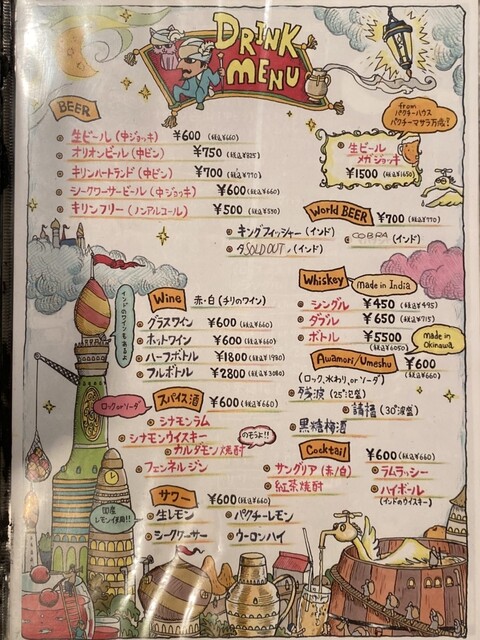 DRINK
MENU
BEER
生ビール (中ジョッキ) ¥600 (税込¥660)
オリオンビール (中ビン) ¥750 (税込¥825)
キリンハートランド (中ビン) ¥700 (税込¥770)
シークワーサービール (中ジョッキ) ¥600 (税込¥660)
キリンフリー (ノンアルコール) ¥500 (税込¥550)
from
パクチーハウス
パクチーマサラ万歳?
生ビール
メガジョッキ
¥1500 (税込¥1650)
World BEER ¥700 (税込¥770)
キングフィッシャー (インド)
COBRA (インド)
SOLD OUT (インド)
インドのワインもあるよ
Wine 赤・白 (チリのワイン)
グラスワイン ¥600 (税込¥660)
ホットワイン ¥600 (税込¥660)
ハーフボトル ¥1800 (税込¥1980)
フルボトル ¥2800 (税込¥3080)
Whiskey made in India
シングル ¥450 (税込¥495)
ダブル ¥650 (税込¥715)
ボトル ¥5500
(税込¥6050)
made in
Okinawa
Awamori/Umeshu ¥600
(税込¥660)
(ロック、水わり、or ソーダ)
残波 (25°泡盛)
請福 (30°泡盛)
黒糖梅酒
ロック or ソーダ
スパイス酒 ¥600 (税込¥660)
シナモンラム
シナモンウイスキー
カルダモン焼酎
フェンネルジン
のもうよ!!
Cocktail ¥600 (税込¥660)
サングリア (赤/白)
ラムラッシー
紅茶焼酎
ハイボール
(インドのウイスキー)
国産
レモン使用!!
サワー ¥600 (税込¥660)
生レモン
パクチーレモン
シークワーサー
ウーロンハイ